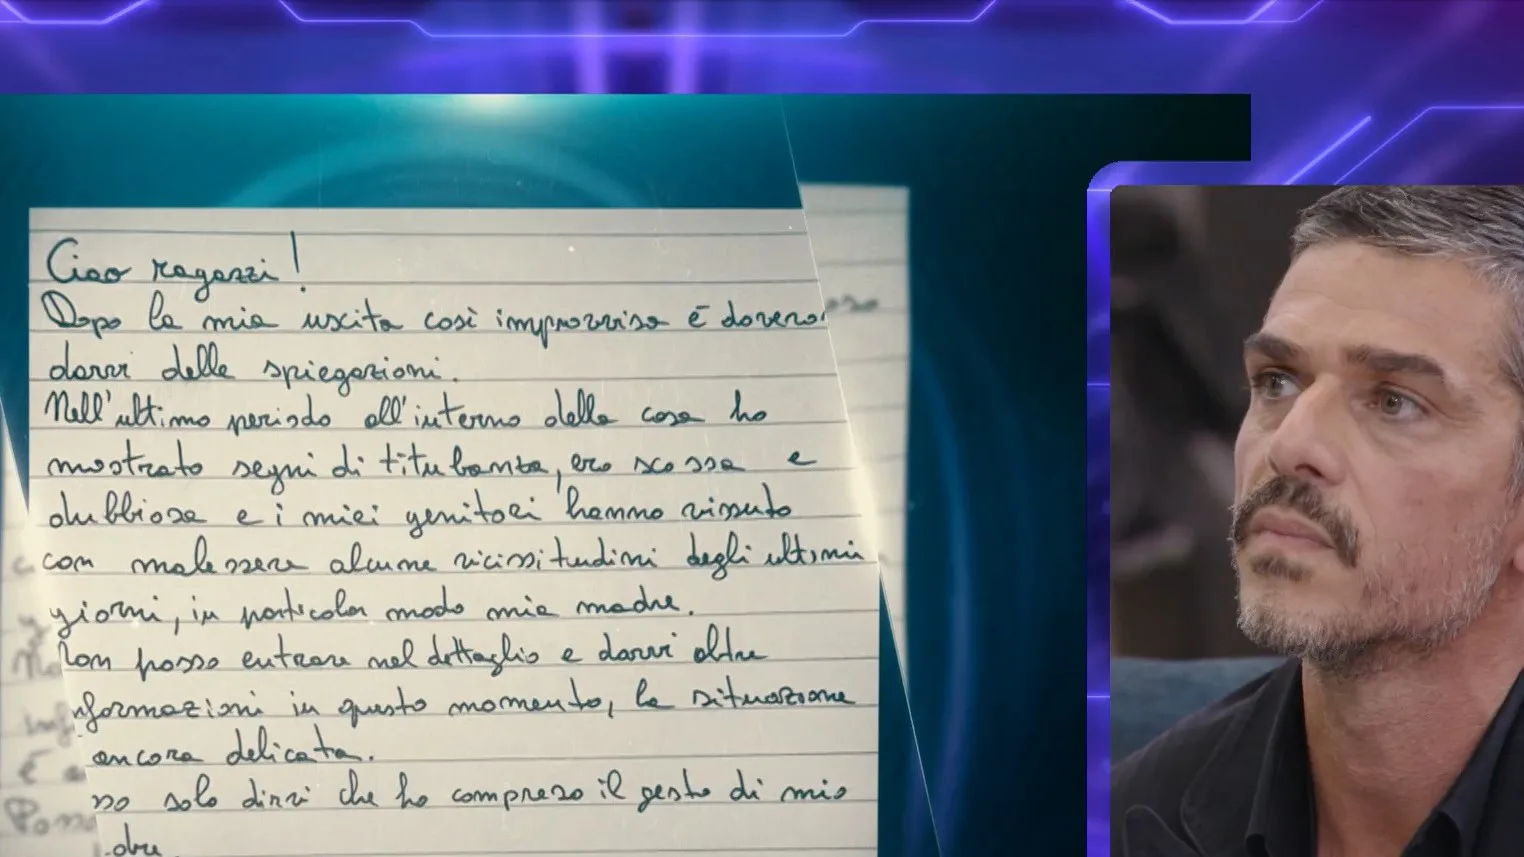 Ciao ragazzi!
Dopo la mia uscita così improvvisa è dovero
darvi delle spiegazioni.
Nell'ultimo periodo all'interno della casa ho
mostrato segni di titubanza, ero scossa e
dubbiosa e i miei genitori hanno vissuto
con malessere alcune vicissitudini degli ultimi
giorni, in particolar modo mia madre.
Non posso entrare nel dettaglio e darvi altre
nformazioni in questo momento, la situazione
ancora delicata.
so solo dirvi che ho compreso il gesto di mio
dre